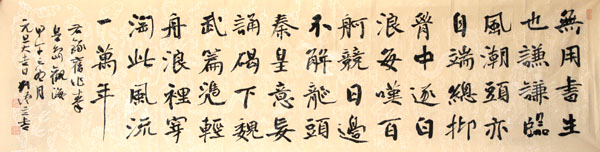 無用書生
也謙謙臨
風潮頭亦
自端總抑
胷中逐白
浪每嘆百
舸競日邊
不解龍頭
秦皇意妄
誦碣下魏
武篇輕
舟浪裡穿
淘此風流
一萬年
舊作
觀海
甲午月
元旦大吉日